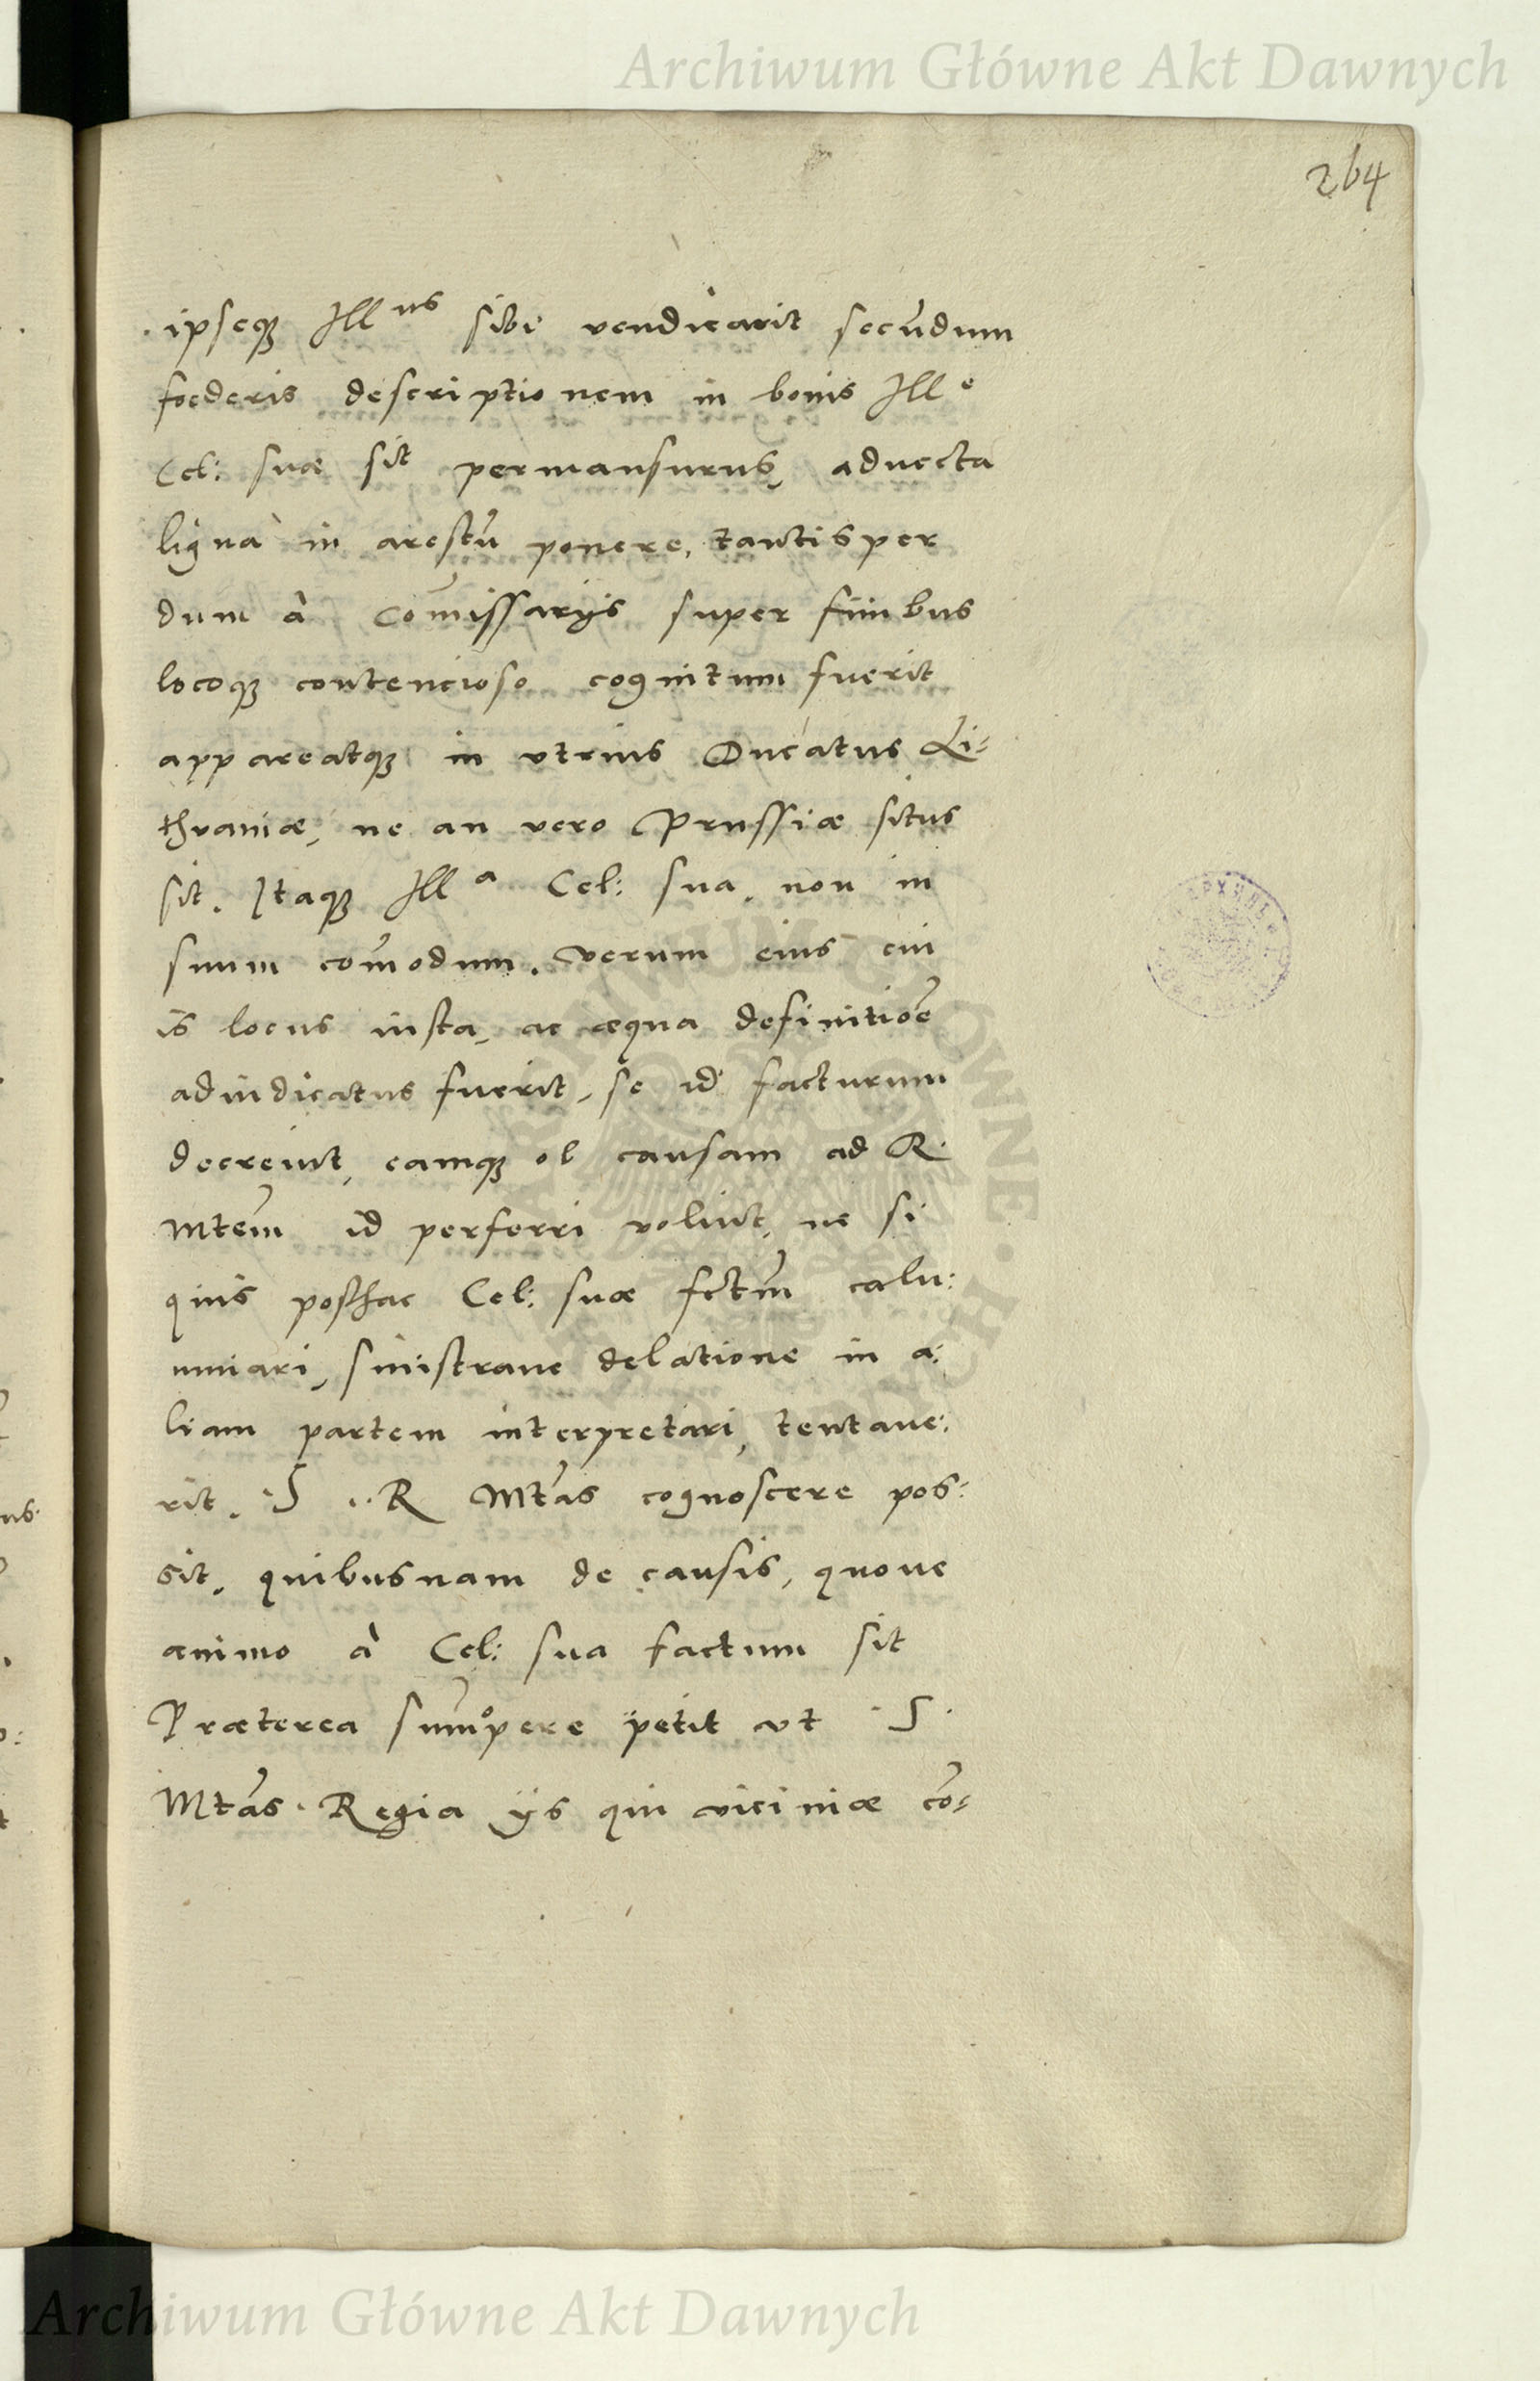 Archiwum Główne Akt Dawnych
264
ipseqꝫ Ill^us sibi vendicarit secūdum
foederis descriptionem in bonis Ill^e
Cel: suæ sit permansurus, aduecta
ligna in arestū ponere, tantisper
dum à Com̄issarijs super finibus
locoqꝫ contencioso cognitum fuerit
appareatqꝫ in vtrius Ducatus Li-
thvaniæ, ne an vero Prussiæ situs
sit. Itaqꝫ Ill^a Cel: sua, non in
suum com̄odum. verum eius cui
is locus iusta, ac æqua definitiōe
adiudicatus fuerit, se id facturum
decreuit, eamqꝫ ob causam ad R.
Mtem̄ id perferri voluit, ne si
quis posthac Cel: suæ fctm̄ calu:
mniari, sinistraue delatione in a:
liam partem interpretari, tentaue:
rit. S. R Mtās cognoscere pos:
sit, quibusnam de causis, quoue
animo à Cel: sua factum sit
Præterea summ̄opere petit vt S.
Mtās. Regia ijs qui viciniæ cō-
Archiwum Główne Akt Dawnych